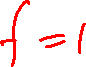 f = 1